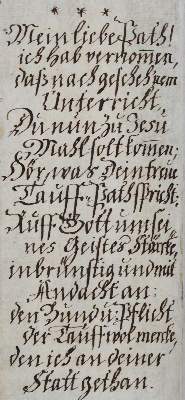 * * *
Mein liebe Path!
ich hab vernom̅en,
daß nach geschehnem
Unterricht,
Du nun zu Jesu
Mahl solt kom̅en:
Hör, was dein treu
Tauff-Path spricht:
Ruff Gott um sei-
nes Geistes Stärke,
inbrünstig und mit
Andacht an:
den Bund u: Pflicht
der Tauff wol mercke,
den ich an deiner
Statt gethan.